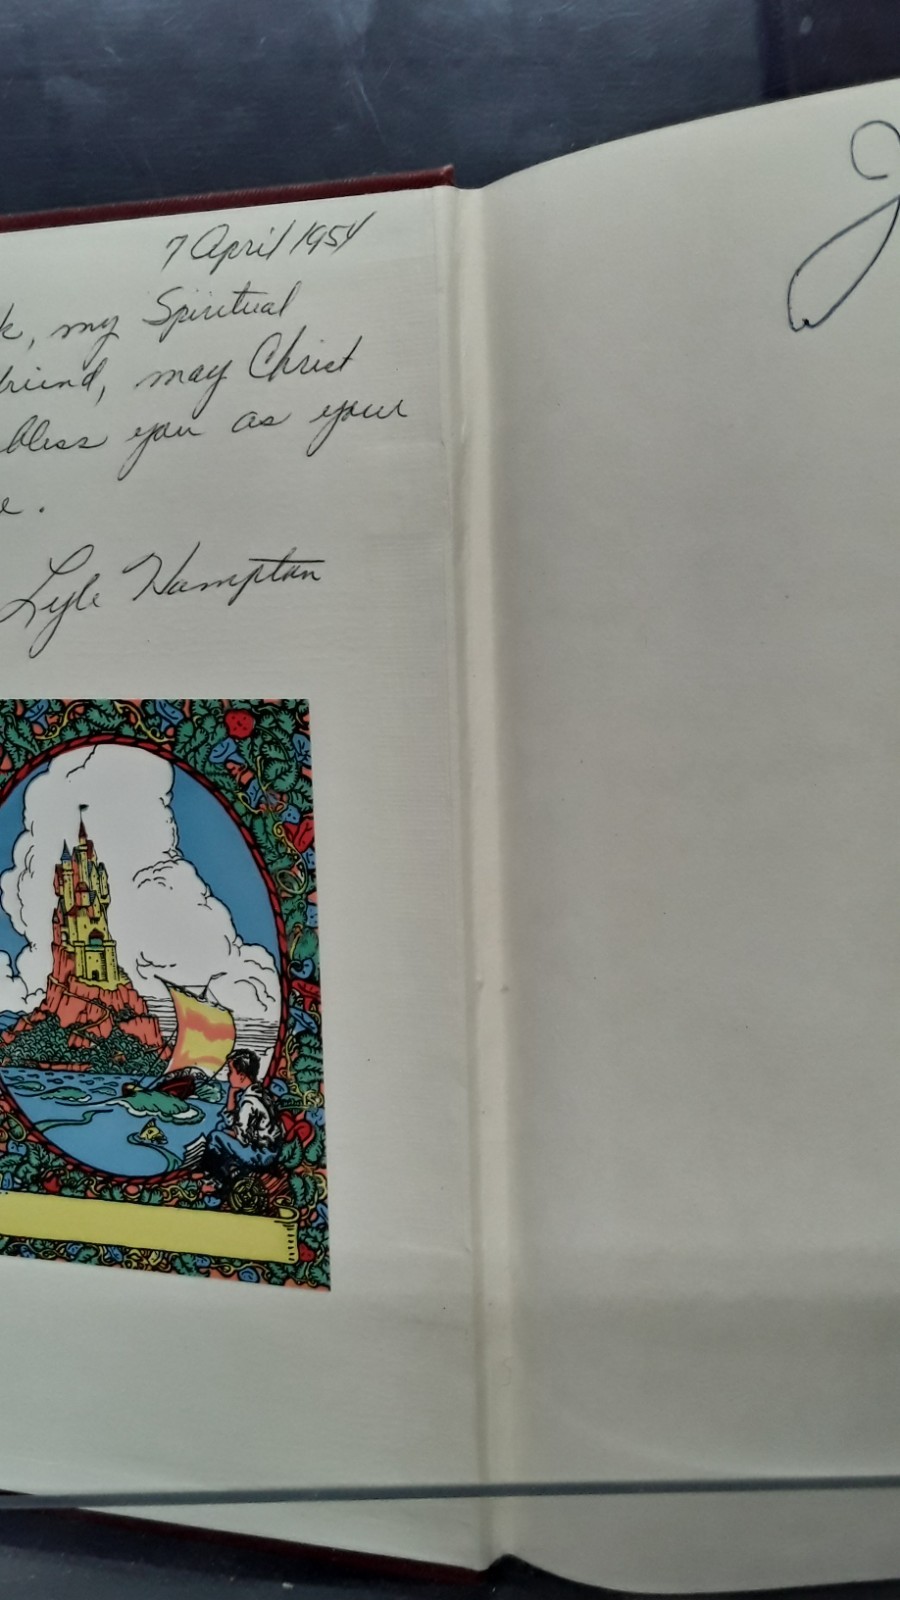 7 April 1954
k, my Spiritual
friend, may Christ
bless you as your
e.
Lyle Hampton
J